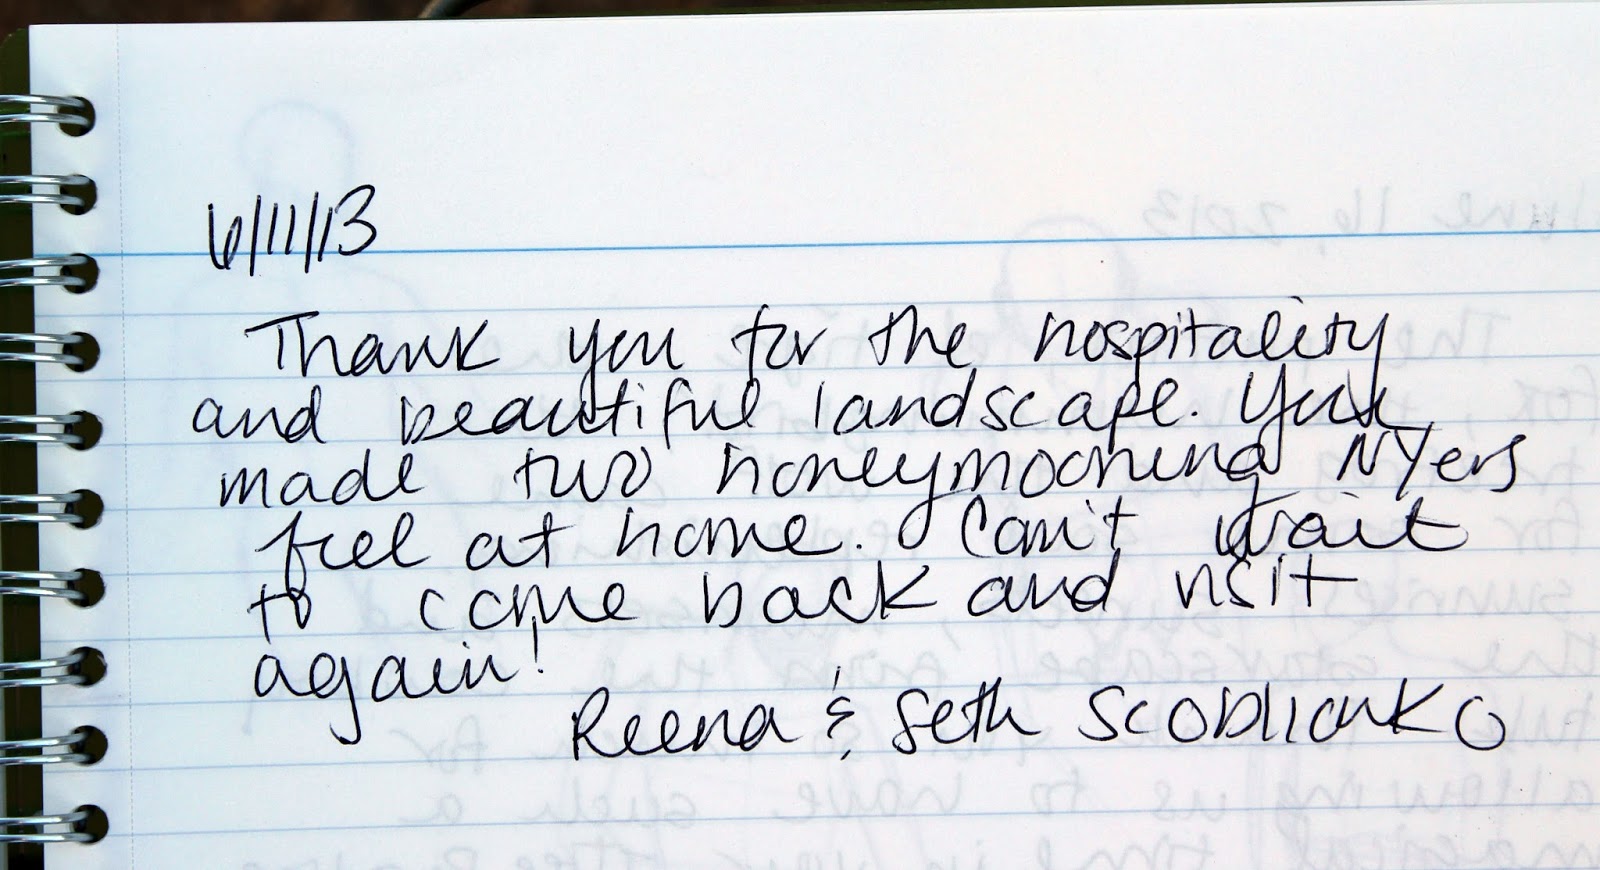 6/11/13
Thank you for the hospitality
and beautiful landscape. You
made two honeymooning NYers
feel at home. Can't wait
to come back and visit
again!
Reena & Seth Scoblionko